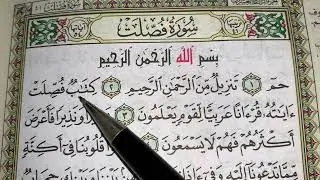 سُورَةُ فُصِّلَتْ
بِسْمِ اللَّهِ الرَّحْمَٰنِ الرَّحِيمِ
حمٓ ١ تَنزِيلٌ مِّنَ الرَّحْمَٰنِ الرَّحِيمِ ٢ كِتَٰبٌ فُصِّلَتْ
ءَايَٰتُهُۥ قُرْءَانًا عَرَبِيًّا لِّقَوْمٍ يَعْلَمُونَ ٣ وَنَذِيرًا فَأَعْرَضَ
أَكْثَرُهُمْ فَهُمْ لَا يَسْمَعُونَ قُلُوبُنَا فِىٓ أَكِنَّةٍ
مِّمَّا تَدْعُونَآ إِلَيْهِ